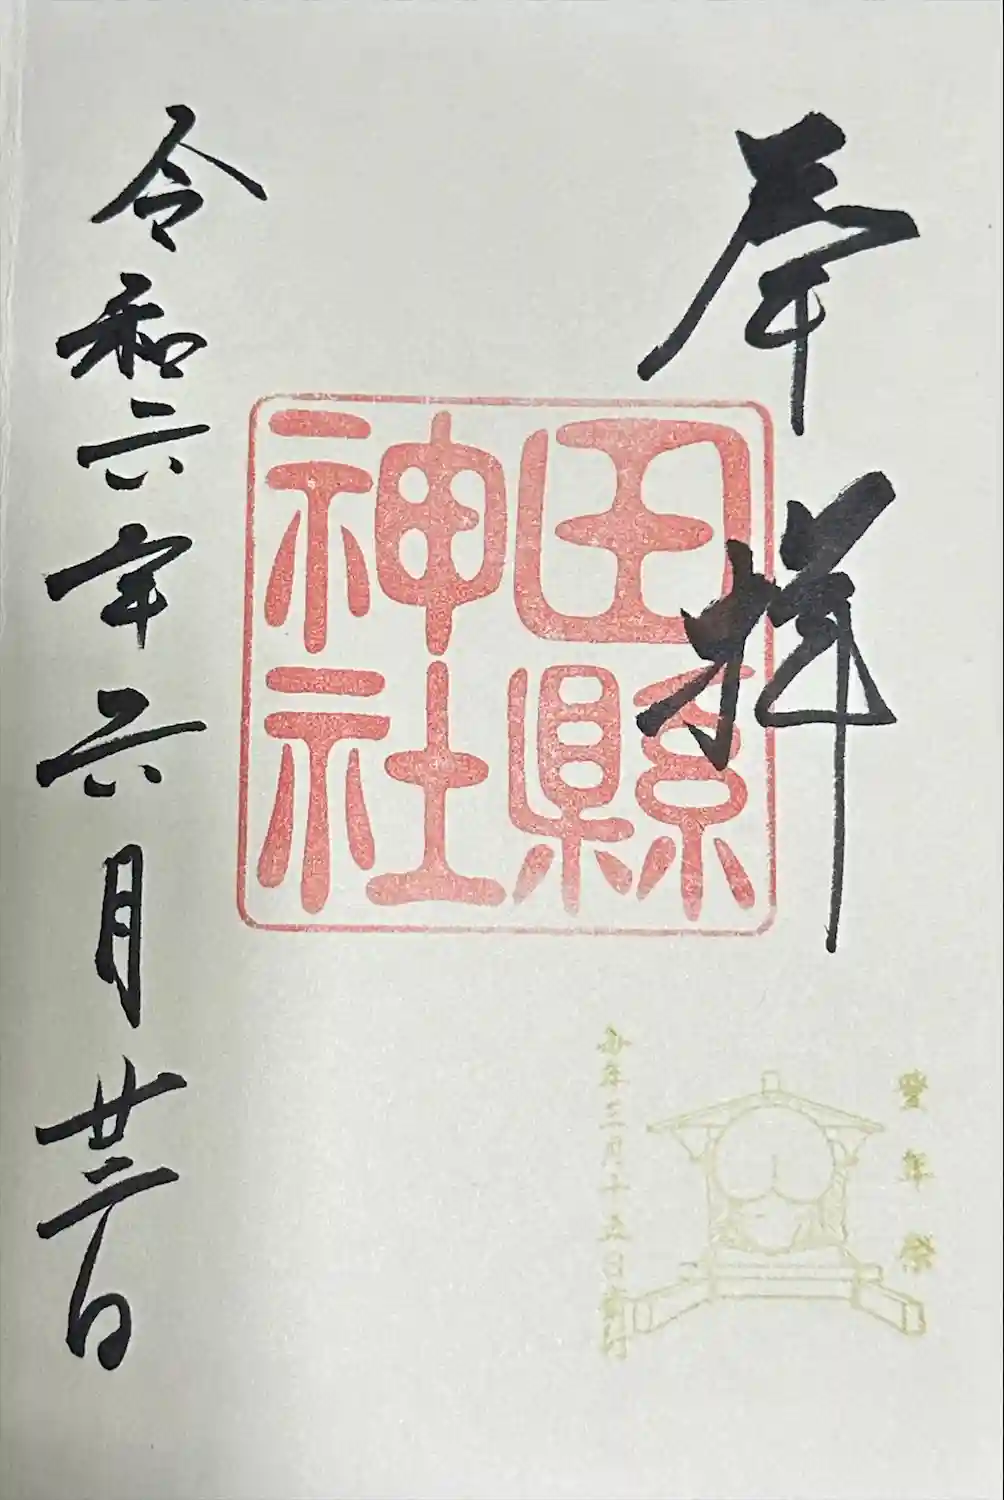 奉拝
田縣
神社
令和六年六月廿二日
豐年祭
毎年三月十五日斎行